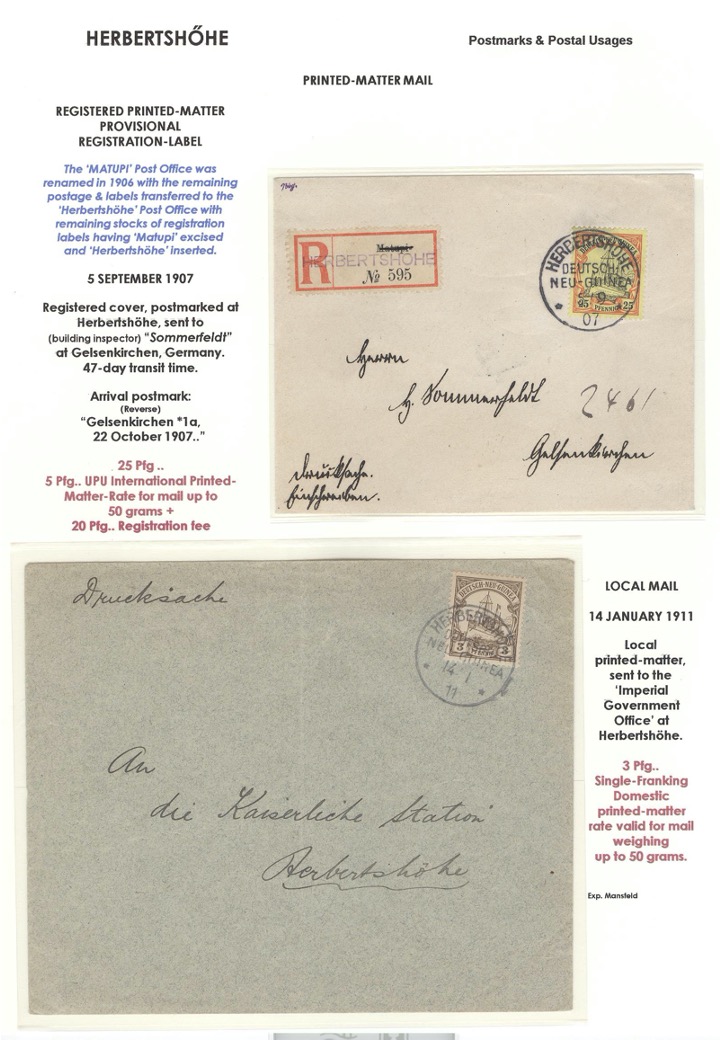 HERBERTSHŐHE
Postmarks & Postal Usages
PRINTED-MATTER MAIL
REGISTERED PRINTED-MATTER
PROVISIONAL
REGISTRATION-LABEL
The ‘MATUPI’ Post Office was
renamed in 1906 with the remaining
postage & labels transferred to the
‘Herbertshöhe’ Post Office with
remaining stocks of registration
labels having ‘Matupi’ excised
and ‘Herbertshöhe’ inserted.
5 SEPTEMBER 1907
Registered cover, postmarked at
Herbertshöhe, sent to
(building inspector) “Sommerfeldt”
at Gelsenkirchen, Germany.
47-day transit time.
Arrival postmark:
(Reverse)
“Gelsenkirchen *1a,
22 October 1907..”
25 Pfg ..
5 Pfg.. UPU International Printed-
Matter-Rate for mail up to
50 grams +
20 Pfg.. Registration fee
R
Matupi
HERBERTSHÖHE
№ 595
HERBERTSHÖHE
DEUTSCH-
NEU-GUINEA
9
07
25 PFENNIG 25
Herrn
H. Sommerfeldt
2461
Gelsenkirchen
Drucksache.
Einschreiben.
Drucksache
DEUTSCH-NEU-GUINEA
3 PFENNIG 3
HERBERTSHÖHE
NEU-GUINEA
14 1
11
An
die Kaiserliche Station
Herbertshöhe
LOCAL MAIL
14 JANUARY 1911
Local
printed-matter,
sent to the
‘Imperial
Government
Office’ at
Herbertshöhe.
3 Pfg..
Single-Franking
Domestic
printed-matter
rate valid for mail
weighing
up to 50 grams.
Exp. Mansfeld